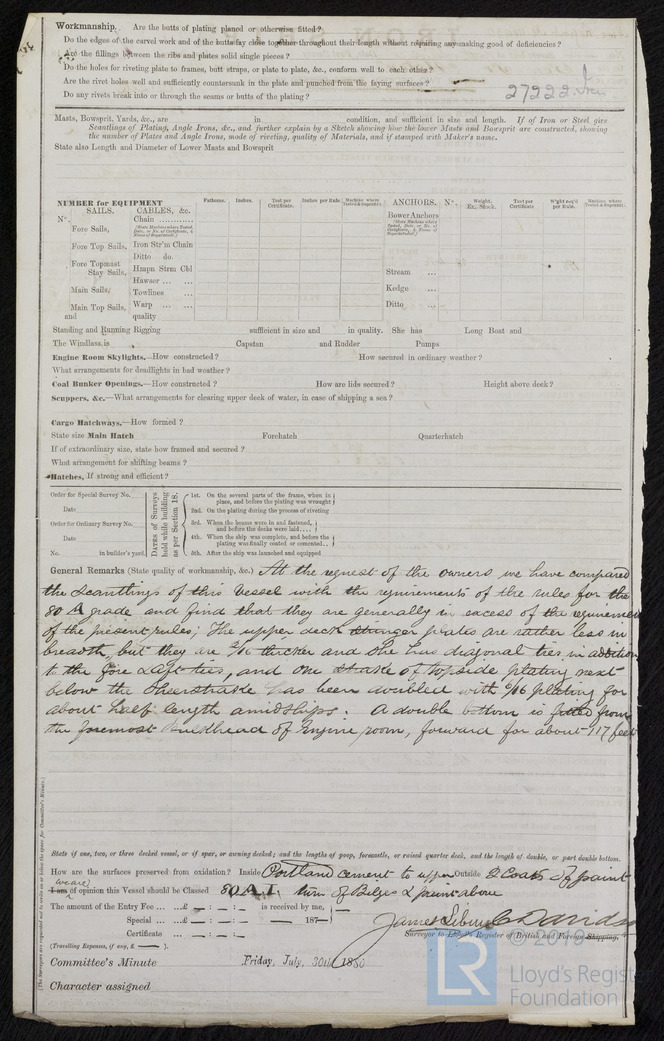 Workmanship. Are the butts of plating planed or otherwise fitted?
Do the edges of the carvel work and of the butts lay close together throughout their length without requiring any making good of deficiencies?
Are the fillings between the ribs and plates solid single pieces?
Do the holes for riveting plate to frames, butt straps, or plate to plate, &c., conform well to each other?
Are the rivet holes well and sufficiently countersunk in the plate and punched from the faying surfaces?
Do any rivets break into or through the seams or butts of the plating?
27222 Iron
Masts, Bowsprit, Yards, &c., are in condition, and sufficient in size and length. If of Iron or Steel give
Scantlings of Plating, Angle Irons, &c., and further explain by a Sketch showing how the lower Masts and Bowsprit are constructed, showing
the number of Plates and Angle Irons, mode of riveting, quality of Materials, and if stamped with Maker's name.
State also Length and Diameter of Lower Masts and Bowsprit
NUMBER for EQUIPMENT Fathoms. Inches. Test per Certificate. Inches per Rule. Machine where Tested & Suprntd. ANCHORS. No. Weight. Ex. Stock. Test per Certificate. W'ght req'd per Rule. Machine where Tested & Suprntd.
No. SAILS. CABLES, &c.
Chain
Fore Sails,
Bower Anchors
Fore Top Sails, Iron Str'm Chain
Ditto do.
Fore Topmast Stay Sails, Hmpn Strm Cbl Stream ...
Hawser ... ...
Main Sails, Towlines ... Kedge ...
Main Top Sails, Warp ... ... Ditto ...
and quality
Standing and Running Rigging sufficient in size and in quality. She has Long Boat and
The Windlass is Capstan and Rudder Pumps
Engine Room Skylights.—How constructed? How secured in ordinary weather?
What arrangements for deadlights in bad weather?
Coal Bunker Openings.—How constructed? How are lids secured? Height above deck?
Scuppers, &c.—What arrangements for clearing upper deck of water, in case of shipping a sea?
Cargo Hatchways.—How formed?
State size Main Hatch Forehatch Quarterhatch
If of extraordinary size, state how framed and secured?
What arrangement for shifting beams?
Hatches, If strong and efficient?
Order for Special Survey No.
Date
Order for Ordinary Survey No.
Date
No. in builder's yard.
DATES of Surveys held while building as per Section 18.
1st. On the several parts of the frame, when in place, and before the plating was wrought
2nd. On the plating during the process of riveting
3rd. When the beams were in and fastened, and before the decks were laid....
4th. When the ship was complete, and before the plating was finally coated or cemented..
5th. After the ship was launched and equipped
General Remarks (State quality of workmanship, &c.) At the request of the owners we have compared
the scantlings of this vessel with the requirements of the rules for the
80 A grade and find that they are generally in excess of the requirements
of the present rules, The upper deck stringer plates are rather less in
breadth, but they are 2/16 thicker and she has diagonal ties in addition
to the fore & aft ties, and one strake of topside plating next
below the Sheerstrake has been doubled with 9/16 plating for
about half length amidships. A double bottom is fitted from
the foremost bulkhead of Engine room, forward for about 117 feet
State if one, two, or three decked vessel, or if spar, or awning decked; and the lengths of poop, forecastle, or raised quarter deck, and the length of double, or part double bottom.
How are the surfaces preserved from oxidation? Inside Portland cement to upper Outside 2 Coats of paint
we are
I am of opinion this Vessel should be Classed 80 A.I. turn of Bilges & paint above
The amount of the Entry Fee ... ..£ — : — : — is received by me,
Special ... ..£ — : — : — 187—
Certificate ... — : — : —
(Travelling Expenses, if any, £ —— ).
Surveyor to Lloyd's Register of British and Foreign Shipping.
Committee's Minute Friday, July, 30th 1880
Character assigned
© 2019
LR
Lloyd's Register
Foundation